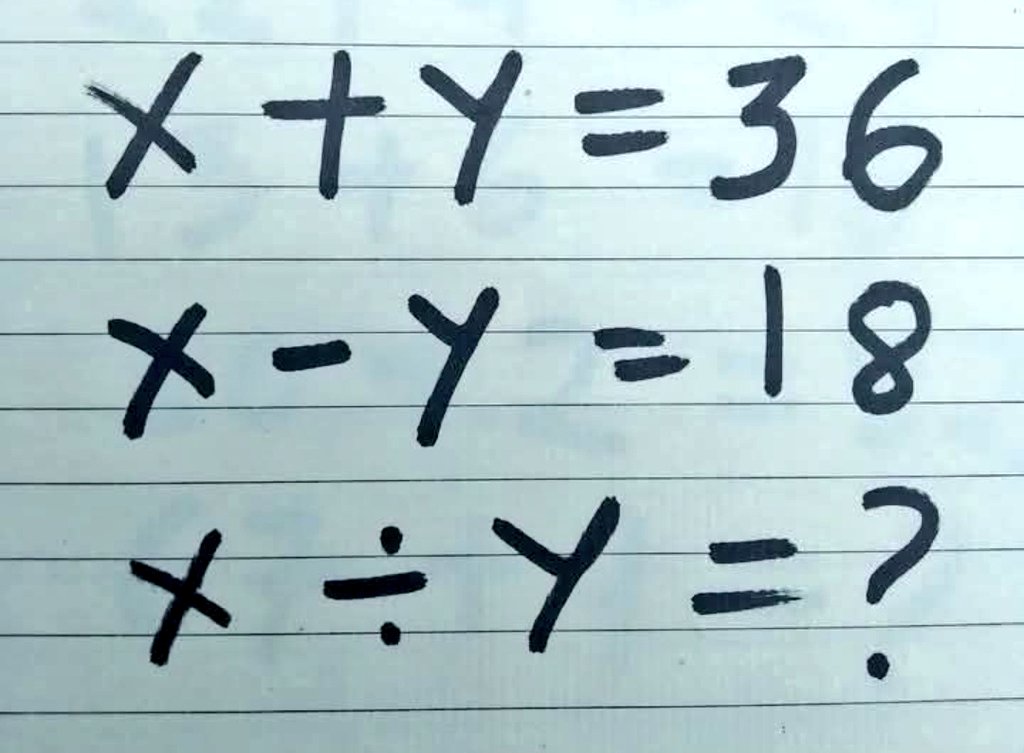 x + y = 36
x - y = 18
x ÷ y = ?